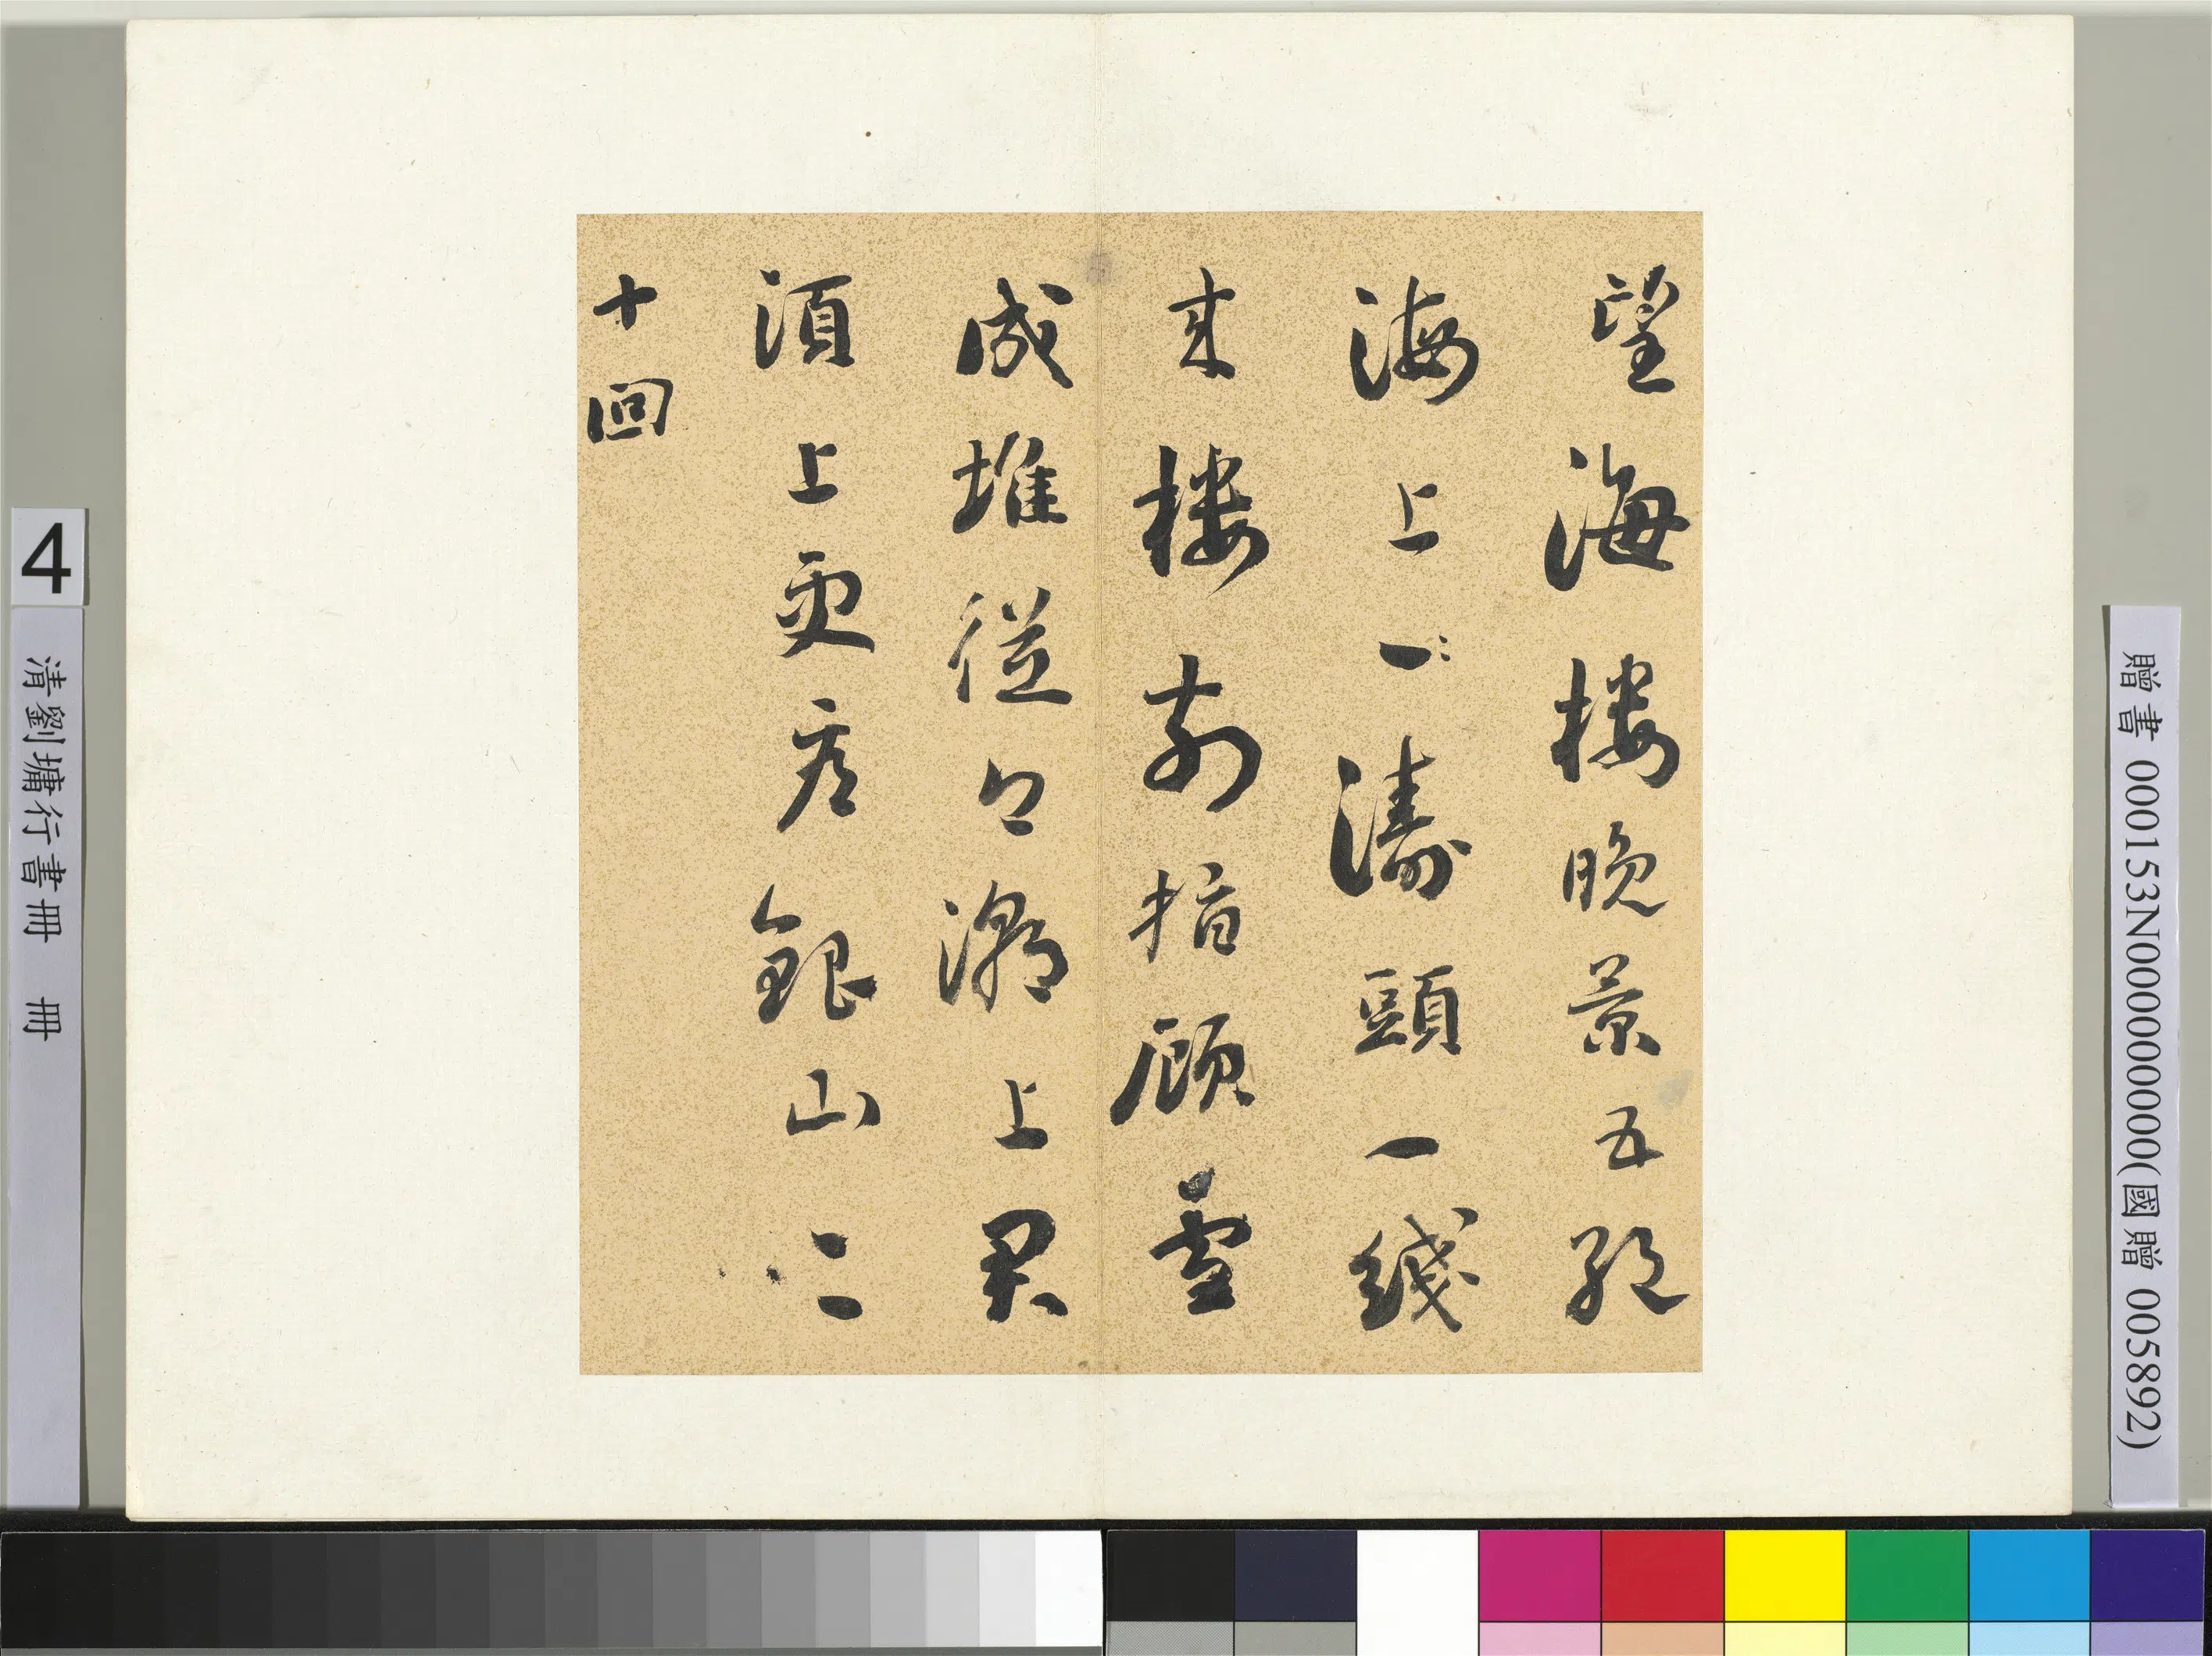 望海樓晚景五絕
海上一濤頭一綫
来樓前指顧雪
成堆從今潮上君
須上更看銀山二
十回
4
清劉墉行書冊 冊
贈書 000153N000000000(國贈 005892)